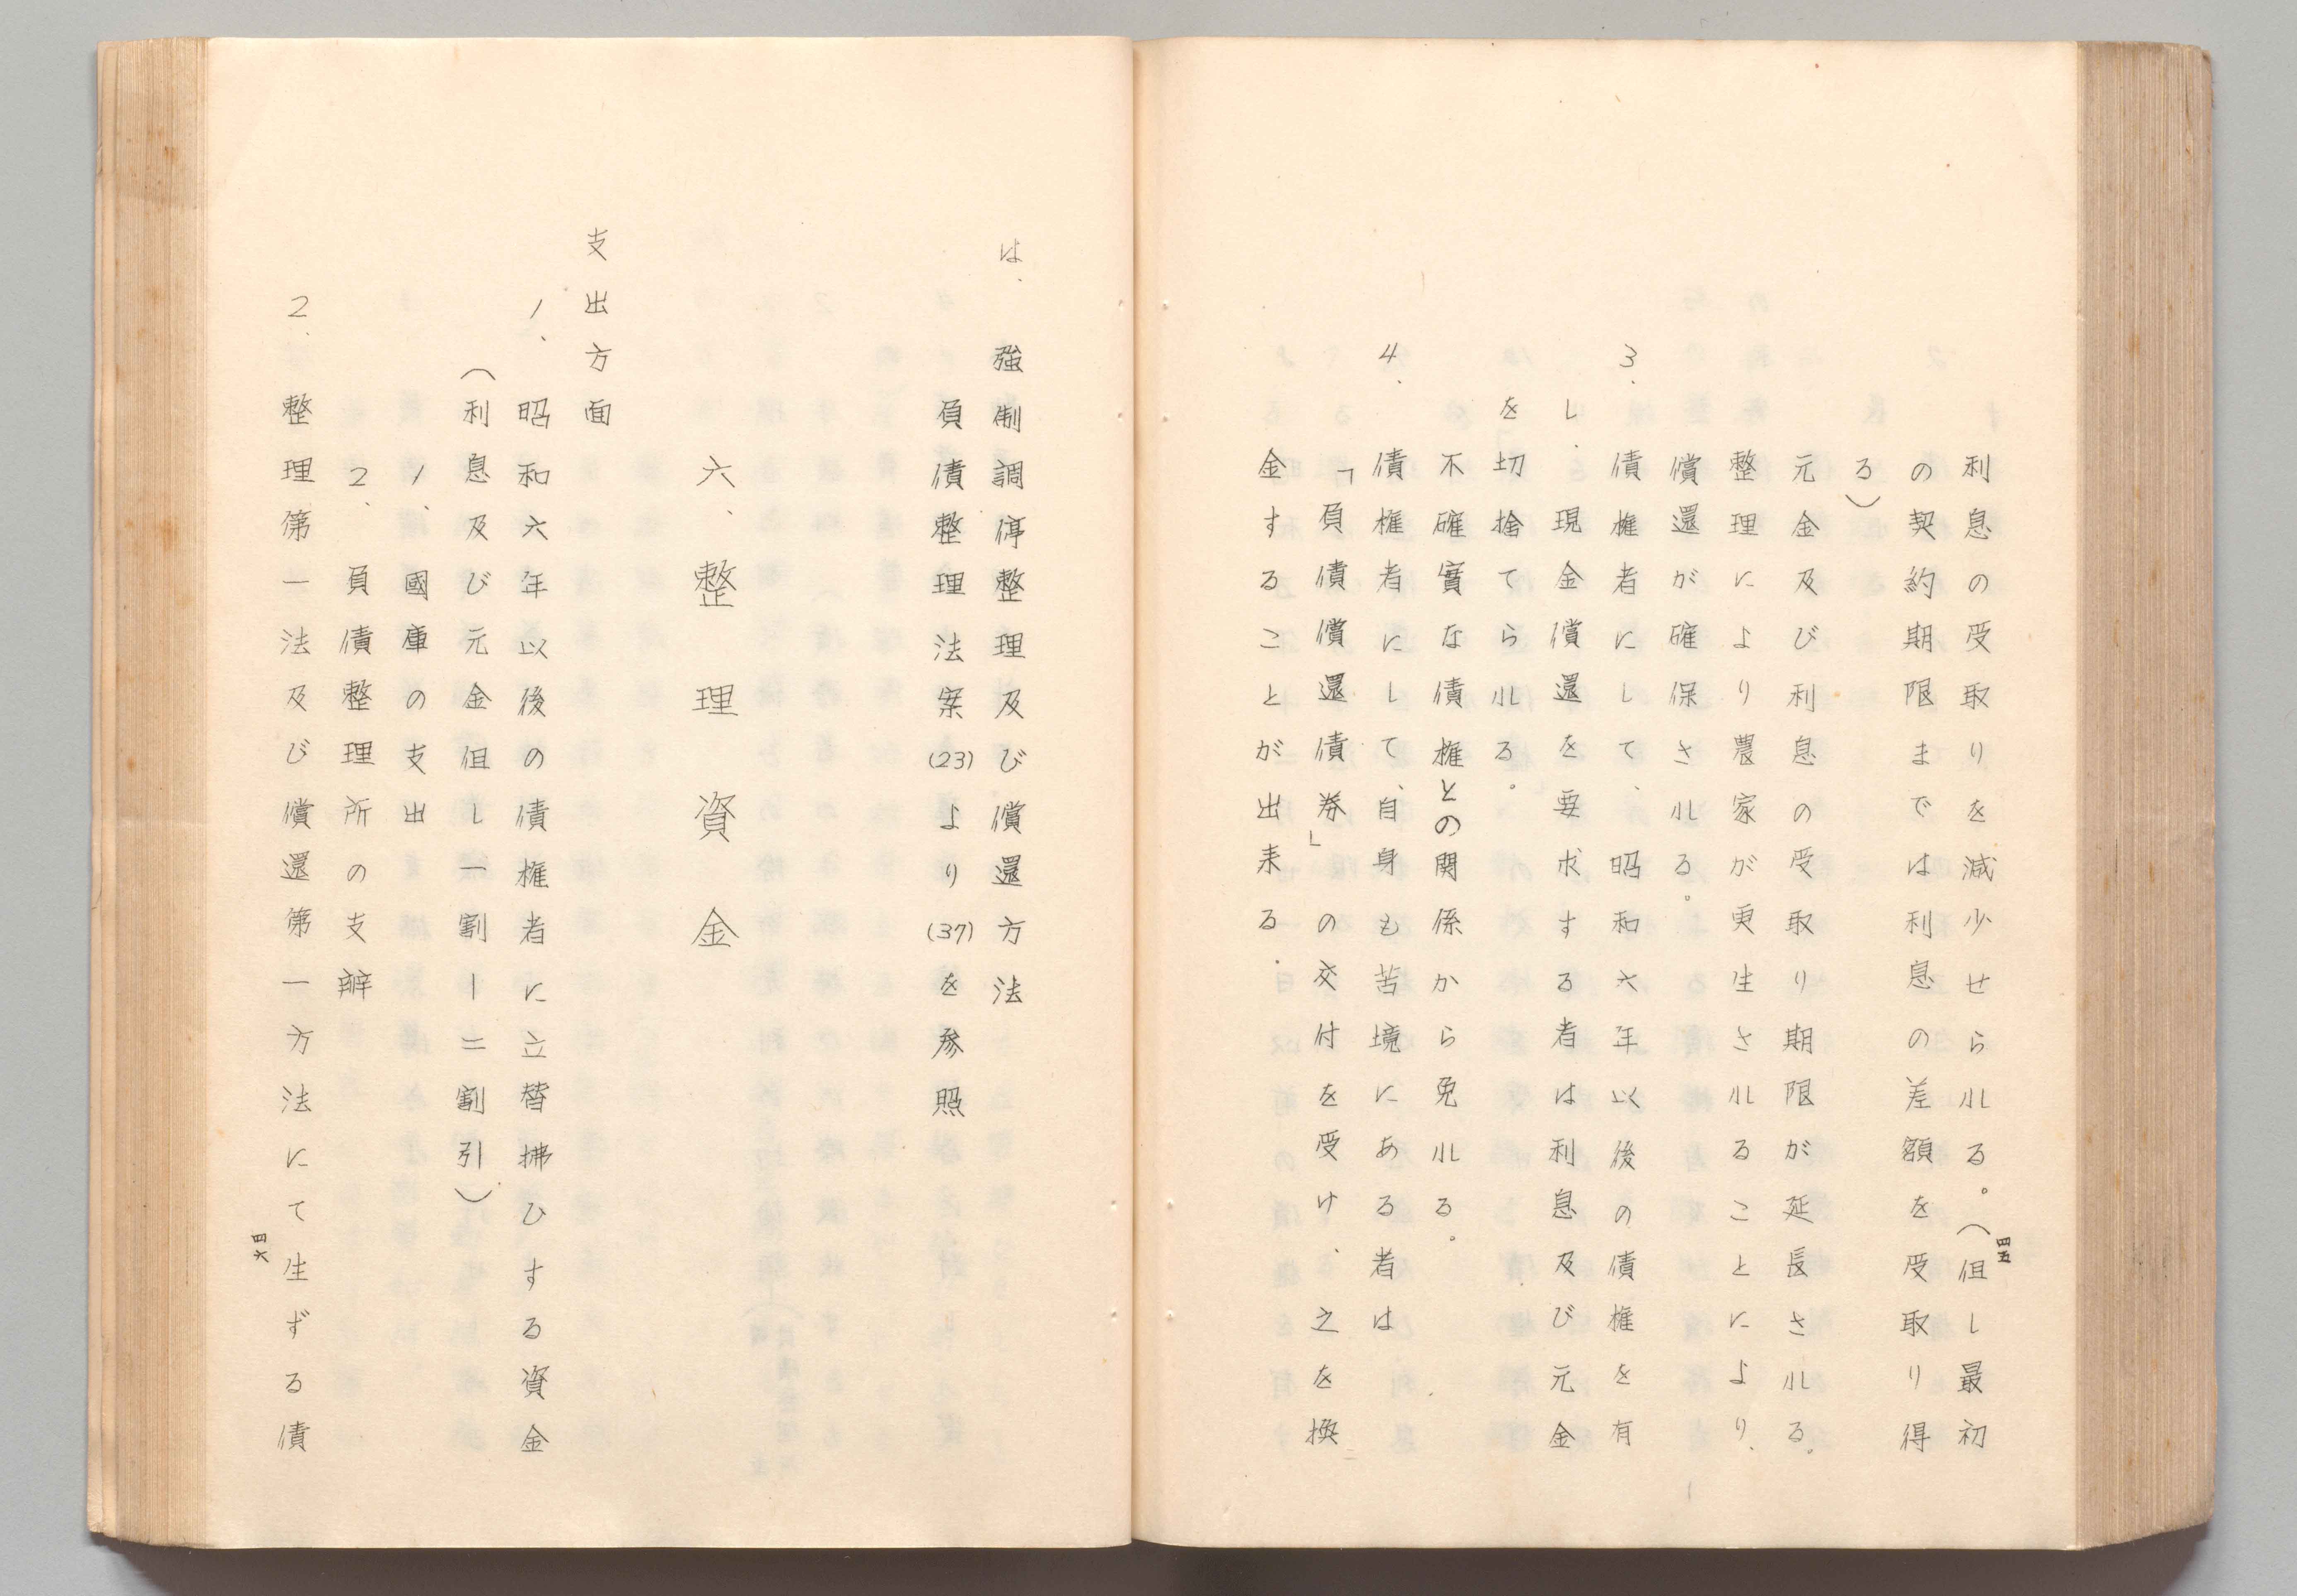 利息の受取りを減少せられる。（但し最初
の契約期限までは利息の差額を受取り得
る）
元金及び利息の受取り期限が延長される。
整理により農家が更生されることにより、
償還が確保される。
3、債権者にして、昭和六年以後の債権を有
し、現金償還を要求する者は利息及び元金
を切捨てられる。
不確實な債権との関係から免れる。
4、債権者にして、自身も苦境にある者は
「負債償還債券」の交付を受け、之を換
金することが出来る．
四五
は、強制調停整理及び償還方法
負債整理法案(23)より(37)を参照
六、整理資金
支出方面
1、昭和六年以後の債権者に立替拂ひする資金
（利息及び元金但し一割ー二割引）
1、國庫の支出
2、負債整理所の支辦
2、整理第一法及び償還第一方法にて生ずる債
四六